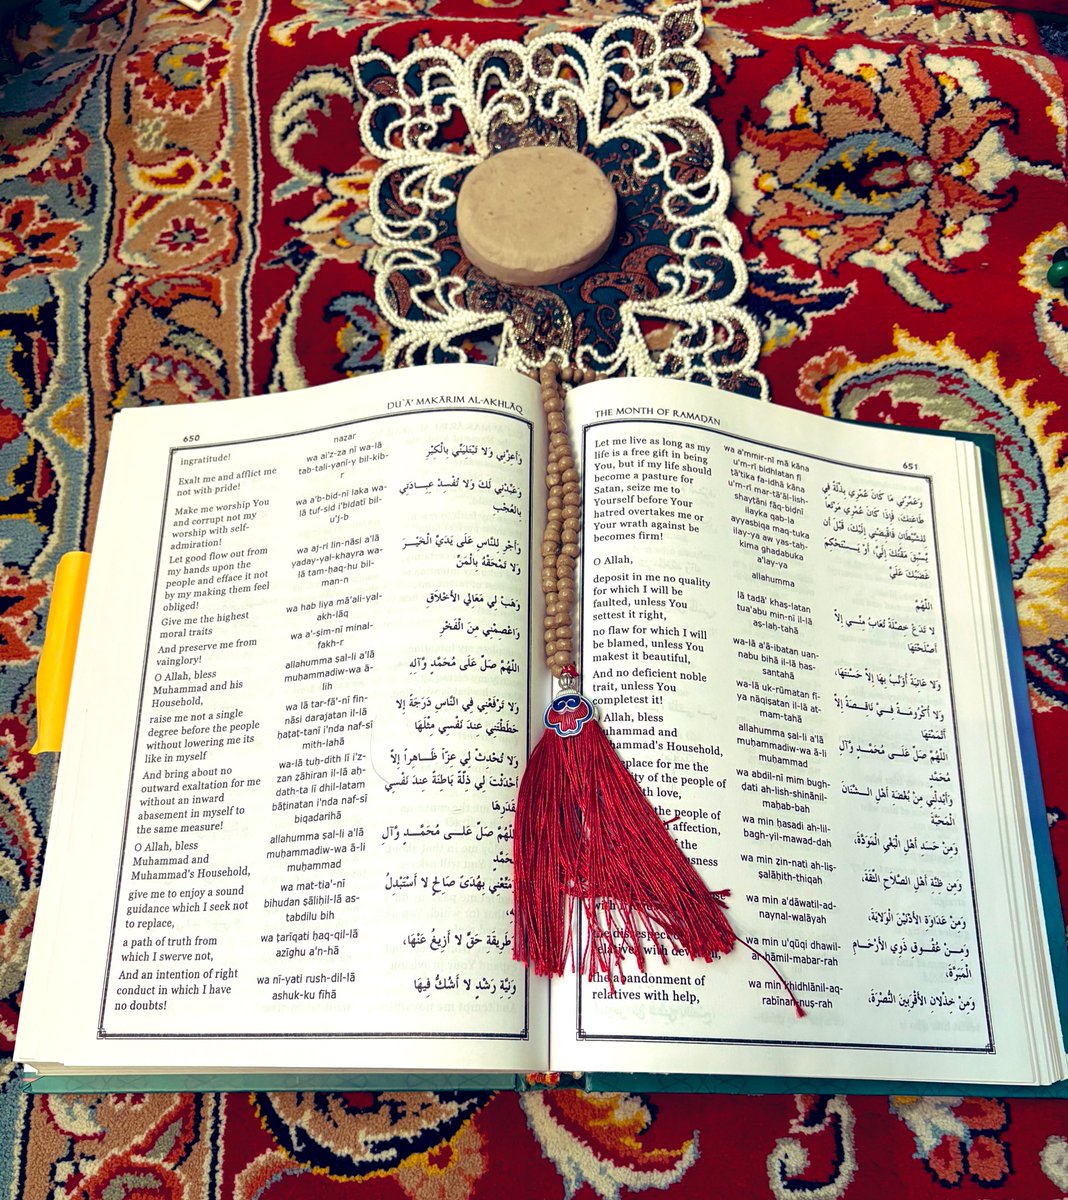 650
DU`Ā' MAKĀRIM AL-AKHLĀQ
ingratitude!
Exalt me and afflict me
not with pride!
Make me worship You
and corrupt not my
worship with self-
admiration!
Let good flow out from
my hands upon the
people and efface it not
by my making them feel
obliged!
Give me the highest
moral traits
And preserve me from
vainglory!
O Allah, bless
Muhammad and his
Household,
raise me not a single
degree before the people
without lowering me its
like in myself
And bring about no
outward exaltation for me
without an inward
abasement in myself to
the same measure!
O Allah, bless
Muhammad and
Muhammad's Household,
give me to enjoy a sound
guidance which I seek not
to replace,
a path of truth from
which I swerve not,
And an intention of right
conduct in which I have
no doubts!
nazar
wa ai'z-za nī wa-lā
tab-tali-yanī-y bil-kib-
r
wa a'b-bid-nī laka wa-
lā tuf-sid i'bidatī bil-
u'j-b
wa aj-ri lin-nāsi a'lā
yaday-yal-khayra wa-
lā tam-ḥaq-hu bil-
man-n
wa hab liya mā'ali-yal-
akh-lāq
wa a'-ṣim-nī minal-
fakh-r
allahumma ṣal-li a'lā
muḥammadiw-wa ā-
lih
wa lā tar-fa'-nī fin-
nāsi darajatan il-lā
ḥaṭaṭ-tanī i'nda naf-sī
mith-lahā
wa-lā tuḥ-dith lī i'z-
zan zāhiran il-lā aḥ-
dath-ta lī dhil-latam
bāṭinatan i'nda naf-sī
biqadarihā
allahumma ṣal-li a'lā
muḥammadiw-wa ā-li
muḥammad
wa mat-tia'-nī
bihudan ṣāliḥil-lā as-
tabdilu bih
wa ṭarīqati ḥaq-qil-lā
azīghu a'n-hā
wa nī-yati rush-dil-lā
ashuk-ku fīhā
وَأَعِزَّنِي وَلَا تَبْتَلِيَنِّي بِالْكِبْرِ
وَعَبِّدْنِي لَكَ وَلَا تُفْسِدْ عِبَادَتِي
بِالْعُجْبِ
وَأَجْرِ لِلنَّاسِ عَلَى يَدَيَّ الْخَيْرَ
وَلَا تَمْحَقْهُ بِالْمَنِّ
وَهَبْ لِي مَعَالِيَ الْأَخْلَاقِ
وَاعْصِمْنِي مِنَ الْفَخْرِ
اللَّهُمَّ صَلِّ عَلَى مُحَمَّدٍ وَآلِهِ
وَلَا تَرْفَعْنِي فِي النَّاسِ دَرَجَةً إِلَّا
حَطَطْتَنِي عِنْدَ نَفْسِي مِثْلَهَا
وَلَا تُحْدِثْ لِي عِزّاً ظَاهِراً إِلَّا
أَحْدَثْتَ لِي ذِلَّةً بَاطِنَةً عِنْدَ نَفْسِي
بِقَدَرِهَا
اللَّهُمَّ صَلِّ عَلَى مُحَمَّدٍ وَآلِ
مُحَمَّدٍ
وَمَتِّعْنِي بِهُدًى صَالِحٍ لَا أَسْتَبْدِلُ
طَرِيقَةِ حَقٍّ لَا أَزِيغُ عَنْهَا،
وَنِيَّةِ رَشْدٍ لَا أَشُكُّ فِيهَا
THE MONTH OF RAMADĀN
651
Let me live as long as my
life is a free gift in being
You, but if my life should
become a pasture for
Satan, seize me to
Yourself before Your
hatred overtakes me or
Your wrath against be
becomes firm!
O Allah,
deposit in me no quality
for which I will be
faulted, unless You
settest it right,
no flaw for which I will
be blamed, unless You
makest it beautiful,
And no deficient noble
trait, unless You
completest it!
Allah, bless
Muhammad and
Muhammad's Household,
replace for me the
of the people of
love,
the people of
affection,
of the
the
relatives with
the abandonment of
relatives with help,
wa a'mmir-nī mā kāna
u'm-rī bidhlatan fī
ṭā'tika fa-idhā kāna
u'm-rī mar-ta'āl-lish-
shayṭāni fāq-biḍnī
ilayka qab-la
ayyasbiqa maq-tuka
ilay-ya aw yas-taḥ-
kima ghadabuka
a'lay-ya
allahumma
lā tadā' khaṣ-latan
tua'abu min-nī il-lā
aṣ-laḥ-tahā
wa-lā a'ā-ibatan uan-
nabu bihā il-lā ḥas-
santahā
wa-lā uk-rūmatan fī-
ya nāqiṣatan il-lā at-
mam-tahā
allahumma ṣal-li a'lā
muḥammadiw-wa ā-li
muḥammad
wa abdil-nī mim bugh-
ḍati ah-lish-shinānil-
maḥab-bah
wa min ḥasadi ah-lil-
bagh-yil-mawad-dah
wa min ẓin-nati ah-liṣ-
ṣalāḥith-thiqah
wa min a'dāwatil-ad-
naynal-walāyah
wa min u'qūqi dhawil-
ar-ḥāmil-mabar-rah
wa min khidhlānil-aq-
rabīnan-nuṣ-rah
وَعَمِّرْنِي مَا كَانَ عُمْرِي بِذْلَةً فِي
طَاعَتِكَ، فَإِذَا كَانَ عُمْرِي مَرْتَعاً
لِلشَّيْطَانِ فَاقْبِضْنِي إِلَيْكَ، قَبْلَ أَنْ
يَسْبِقَ مَقْتُكَ إِلَيَّ، أَوْ يَسْتَحْكِمَ
غَضَبُكَ عَلَيَّ
اللَّهُمَّ
لَا تَدَعْ خَصْلَةً تُعَابُ مِنِّي إِلَّا
أَصْلَحْتَهَا
وَلَا عَائِبَةً أُؤَنَّبُ بِهَا إِلَّا حَسَّنْتَهَا،
وَلَا أُكْرُومَةً فِيَّ نَاقِصَةً إِلَّا
أَتْمَمْتَهَا
اللَّهُمَّ صَلِّ عَلَى مُحَمَّدٍ وَآلِ
مُحَمَّدٍ
وَأَبْدِلْنِي مِنْ بُغْضَةِ أَهْلِ الشَّنَآنِ
الْمَحَبَّةَ
وَمِنْ حَسَدِ أَهْلِ الْبَغْيِ الْمَوَدَّةَ،
وَمِنْ ظِنَّةِ أَهْلِ الصَّلَاحِ الثِّقَةَ،
وَمِنْ عَدَاوَةِ الْأَدْنَيْنَ الْوَلَايَةَ،
وَمِنْ عُقُوقِ ذَوِي الْأَرْحَامِ
الْمَبَرَّةَ،
وَمِنْ خِذْلَانِ الْأَقْرَبِينَ النُّصْرَةَ،